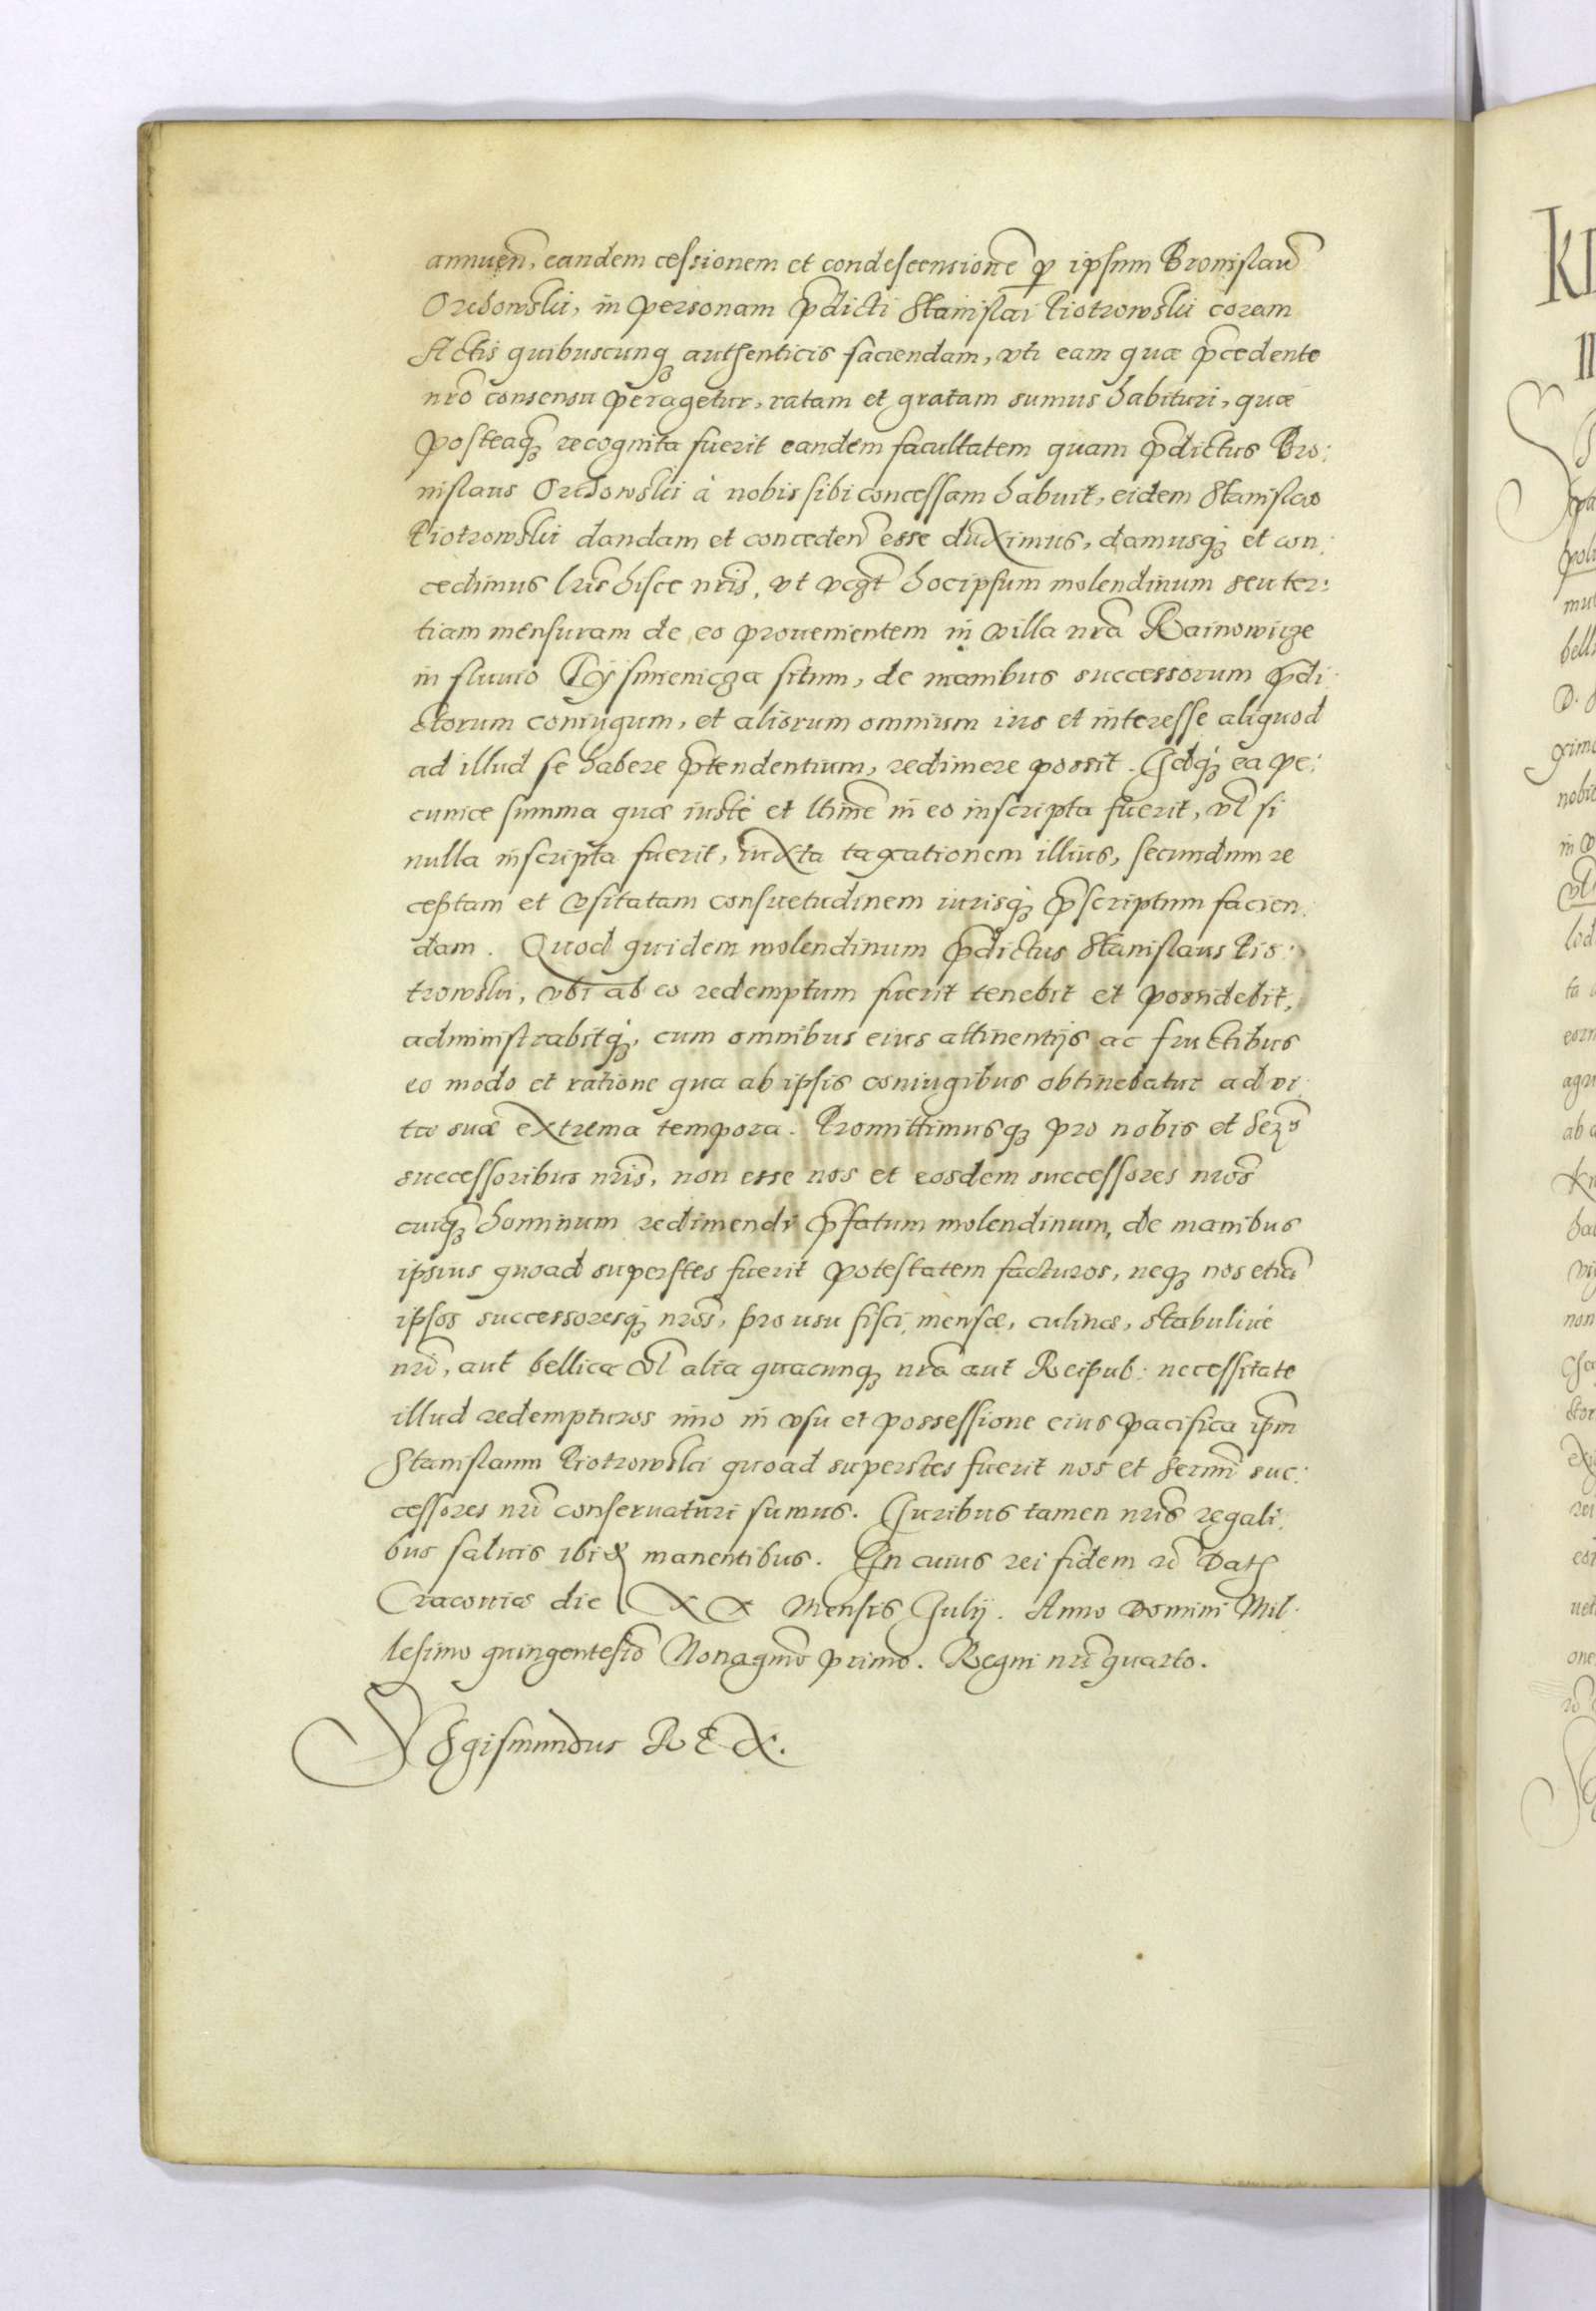 annuen̄, eandem cessionem et condescensionē p̱ ipsum Bronislaū
Orchowski, in personam p̄dicti Stanislai Piotrowski coram
Actis quibuscunq₃ authenticis faciendam, vti eam quæ p̄cedente
nr̄o consensu peragetur, ratam et gratam sumus habituri, quæ
posteaq₃ recognita fuerit eandem facultatem quam p̄dictus Bro:
nislaus Orchowski à nobis sibi concessam habuit, eidem Stanislao
Piotrowski dandam et conceden̄ esse duximus, damusq₃ et con:
cedimus lr̄is hisce nr̄is, vt hoc ipsum molendinum seu ter:
tiam mensuram de eo prouenientem in villa nr̄a Bainowicze
in fluuio Tÿsmienicza situm, de manibus successorum p̄di
ctorum coniugum, et aliorum omnium ius et interesse aliquod
ad illud se habere p̄tendentium, redimere possit. Idq₃ ea pe:
cuniæ summa quæ iustè et ltimē in eo inscripta fuerit, vl̄ si
nulla inscripta fuerit, iuxta taxationem illius, secundum re
ceptam et vsitatam consuetudinem iurisq₃ p̄scriptum facien:
dam. Quod quidem molendinum p̄dictus Stanislaus Pio:
trowski, vbi ab eo redemptum fuerit tenebit et possidebit,
administrabitq₃, cum omnibus eius attinentijs ac fructibus
eo modo et ratione qua ab ipsis coniugibus obtinebatur ad vi
tæ suæ extrema tempora. Promittimusq₃ pro nobis et Ser̄mis
successoribus nr̄is, non esse nos et eosdem successores nr̄os
cuiq₃ hominum redimendi p̄fatum molendinum, de manibus
ipsius quoad superstes fuerit potestatem facturos, neq₃ nos etiā
ipsos successoresq₃ nr̄os, pro usu fisci, mensæ, culinæ, stabuliue
nr̄i, aut bellica vl̄ alia quacunq₃ nr̄a aut Reipub: necessitate
illud redempturos imo in vsu et possessione eius pacifica ipm̄
Stanislaum Piotrowski quoad superstes fuerit nos et Sermi suc:
cessores nr̄i conseruaturi sumus. Iuribus tamen nr̄is regali:
bus saluis ibi manentibus. In cuius rei fidem Dat
Cracouiæ die XX Mensis Iulij. Anno Domini Mil:
lesimo quingentesīo Nonagm̄o primo. Regni nr̄i quarto.
Sigismundus REX.